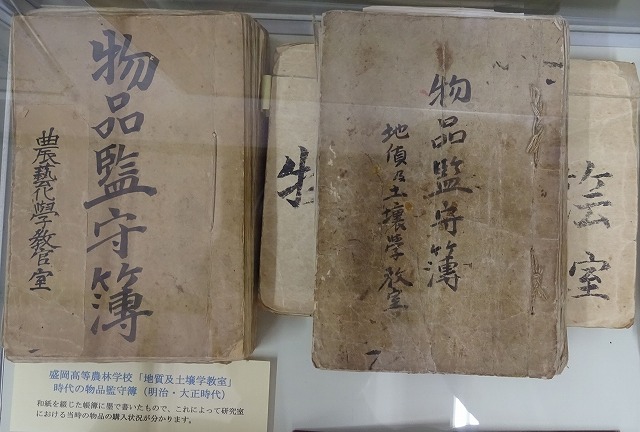 物品監守簿
農藝化學教官室
物品監守簿
地質及土壤学教室
室
盛岡高等農林学校「地質及土壌学教室」
時代の物品監守簿（明治・大正時代）
和紙を綴じた帳簿に墨で書いたもので、これによって研究室
における当時の物品の購入状況が分かります。